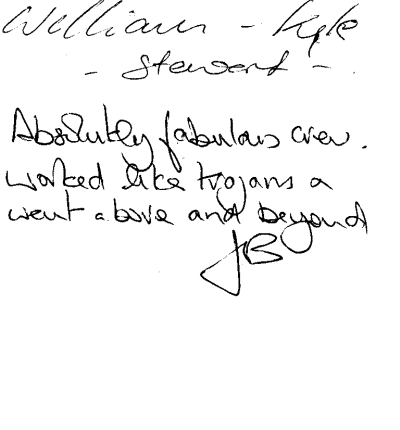 William - Kyle
- Stewart -
Absolutely fabulous crew.
worked like trojans a
went above and beyond
JB